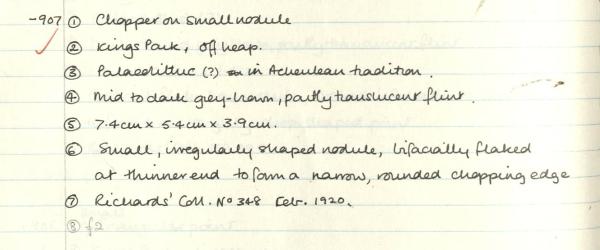 -907 ① Chopper on small nodule
② Kings Park, off heap.
③ Palaeolithic (?) in Acheulean tradition.
④ Mid to dark grey-brown, partly translucent flint.
⑤ 7.4cm x 5.4cm x 3.9cm.
⑥ Small, irregularly shaped nodule, bifacially flaked
at thinner end to form a narrow, rounded chopping edge
⑦ Richards' Coll. No 348 Feb. 1920.
⑧ f2